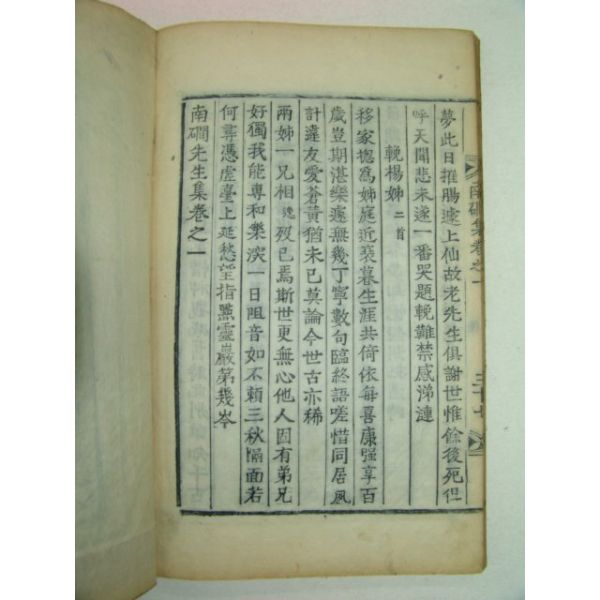 夢此日摧腸遽上仙故老先生俱謝世惟餘後死但
呼天聞悲未遂一番哭題輓難禁感涕漣
輓楊姊 二首
移家揔爲姊庭近衰暮生涯共倚依每喜康强享百
歲豈期湛樂遽無幾丁寧數句臨終語嗟惜同居風
計違友愛蒼黃猶未已莫論今世古亦稀
兩姊一兄相逸歿已焉斯世更無心他人因有弟兄
好獨我能專和樂湥一日阻音如不賴三秋隔面若
何尋憑虛臺上延愁望指點靈巖第幾岑
南磵先生集卷之一
南磵集卷之一
三十七